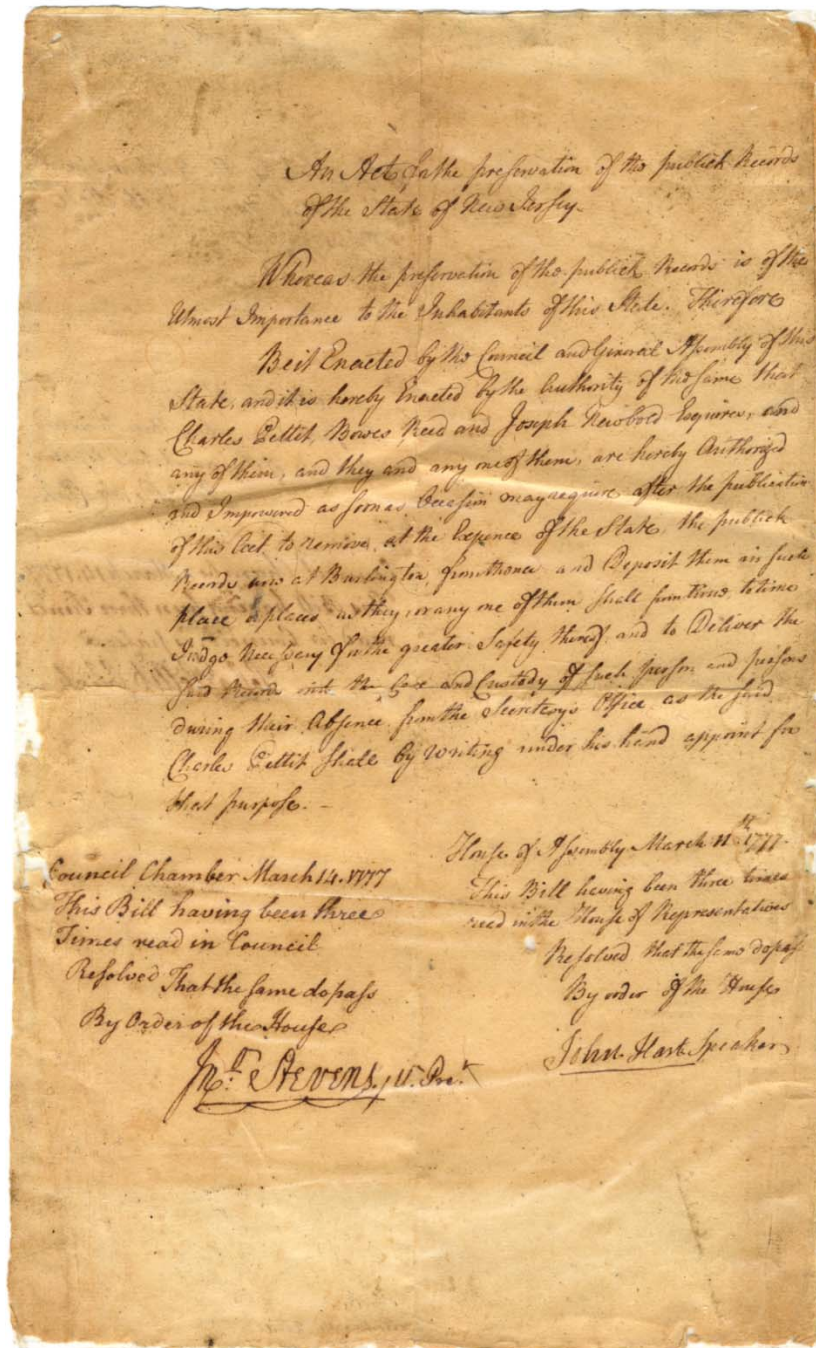 An Act for the preservation of the publick Records
of the State of New Jersey.
Whereas the preservation of the publick Records is of the
Utmost Importance to the Inhabitants of this State. Therefore
Be it Enacted by the Council and General Assembly of this
State, and it is hereby Enacted by the Authority of the same that
Charles Pettit, Bowes Reed and Joseph Newbold Esquires, and
any of them, and they and any one of them, are hereby Authorized
and Impowered as soon as Occasion may require after the publication
of this Act, to remove, at the Expence of the State, the publick
Records now at Burlington, from thence and Deposit them in such
place or places as they, or any one of them shall from time to time
Judge Necessary for the greater Safety thereof and to Deliver the
said Records into the Care and Custody of such person and persons
during their Absence from the Secretary's Office as the said
Charles Pettit shall by Writing under his hand appoint for
that purpose.
House of Assembly March 11th 1777.
This Bill having been three times
read in the House of Representatives
Resolved that the same do pass
By order of the House
John Hart Speaker
Council Chamber March 14. 1777
This Bill having been three
Times read in Council
Resolved That the same do pass
By Order of the House
Jno. Stevens, V. Pre.t